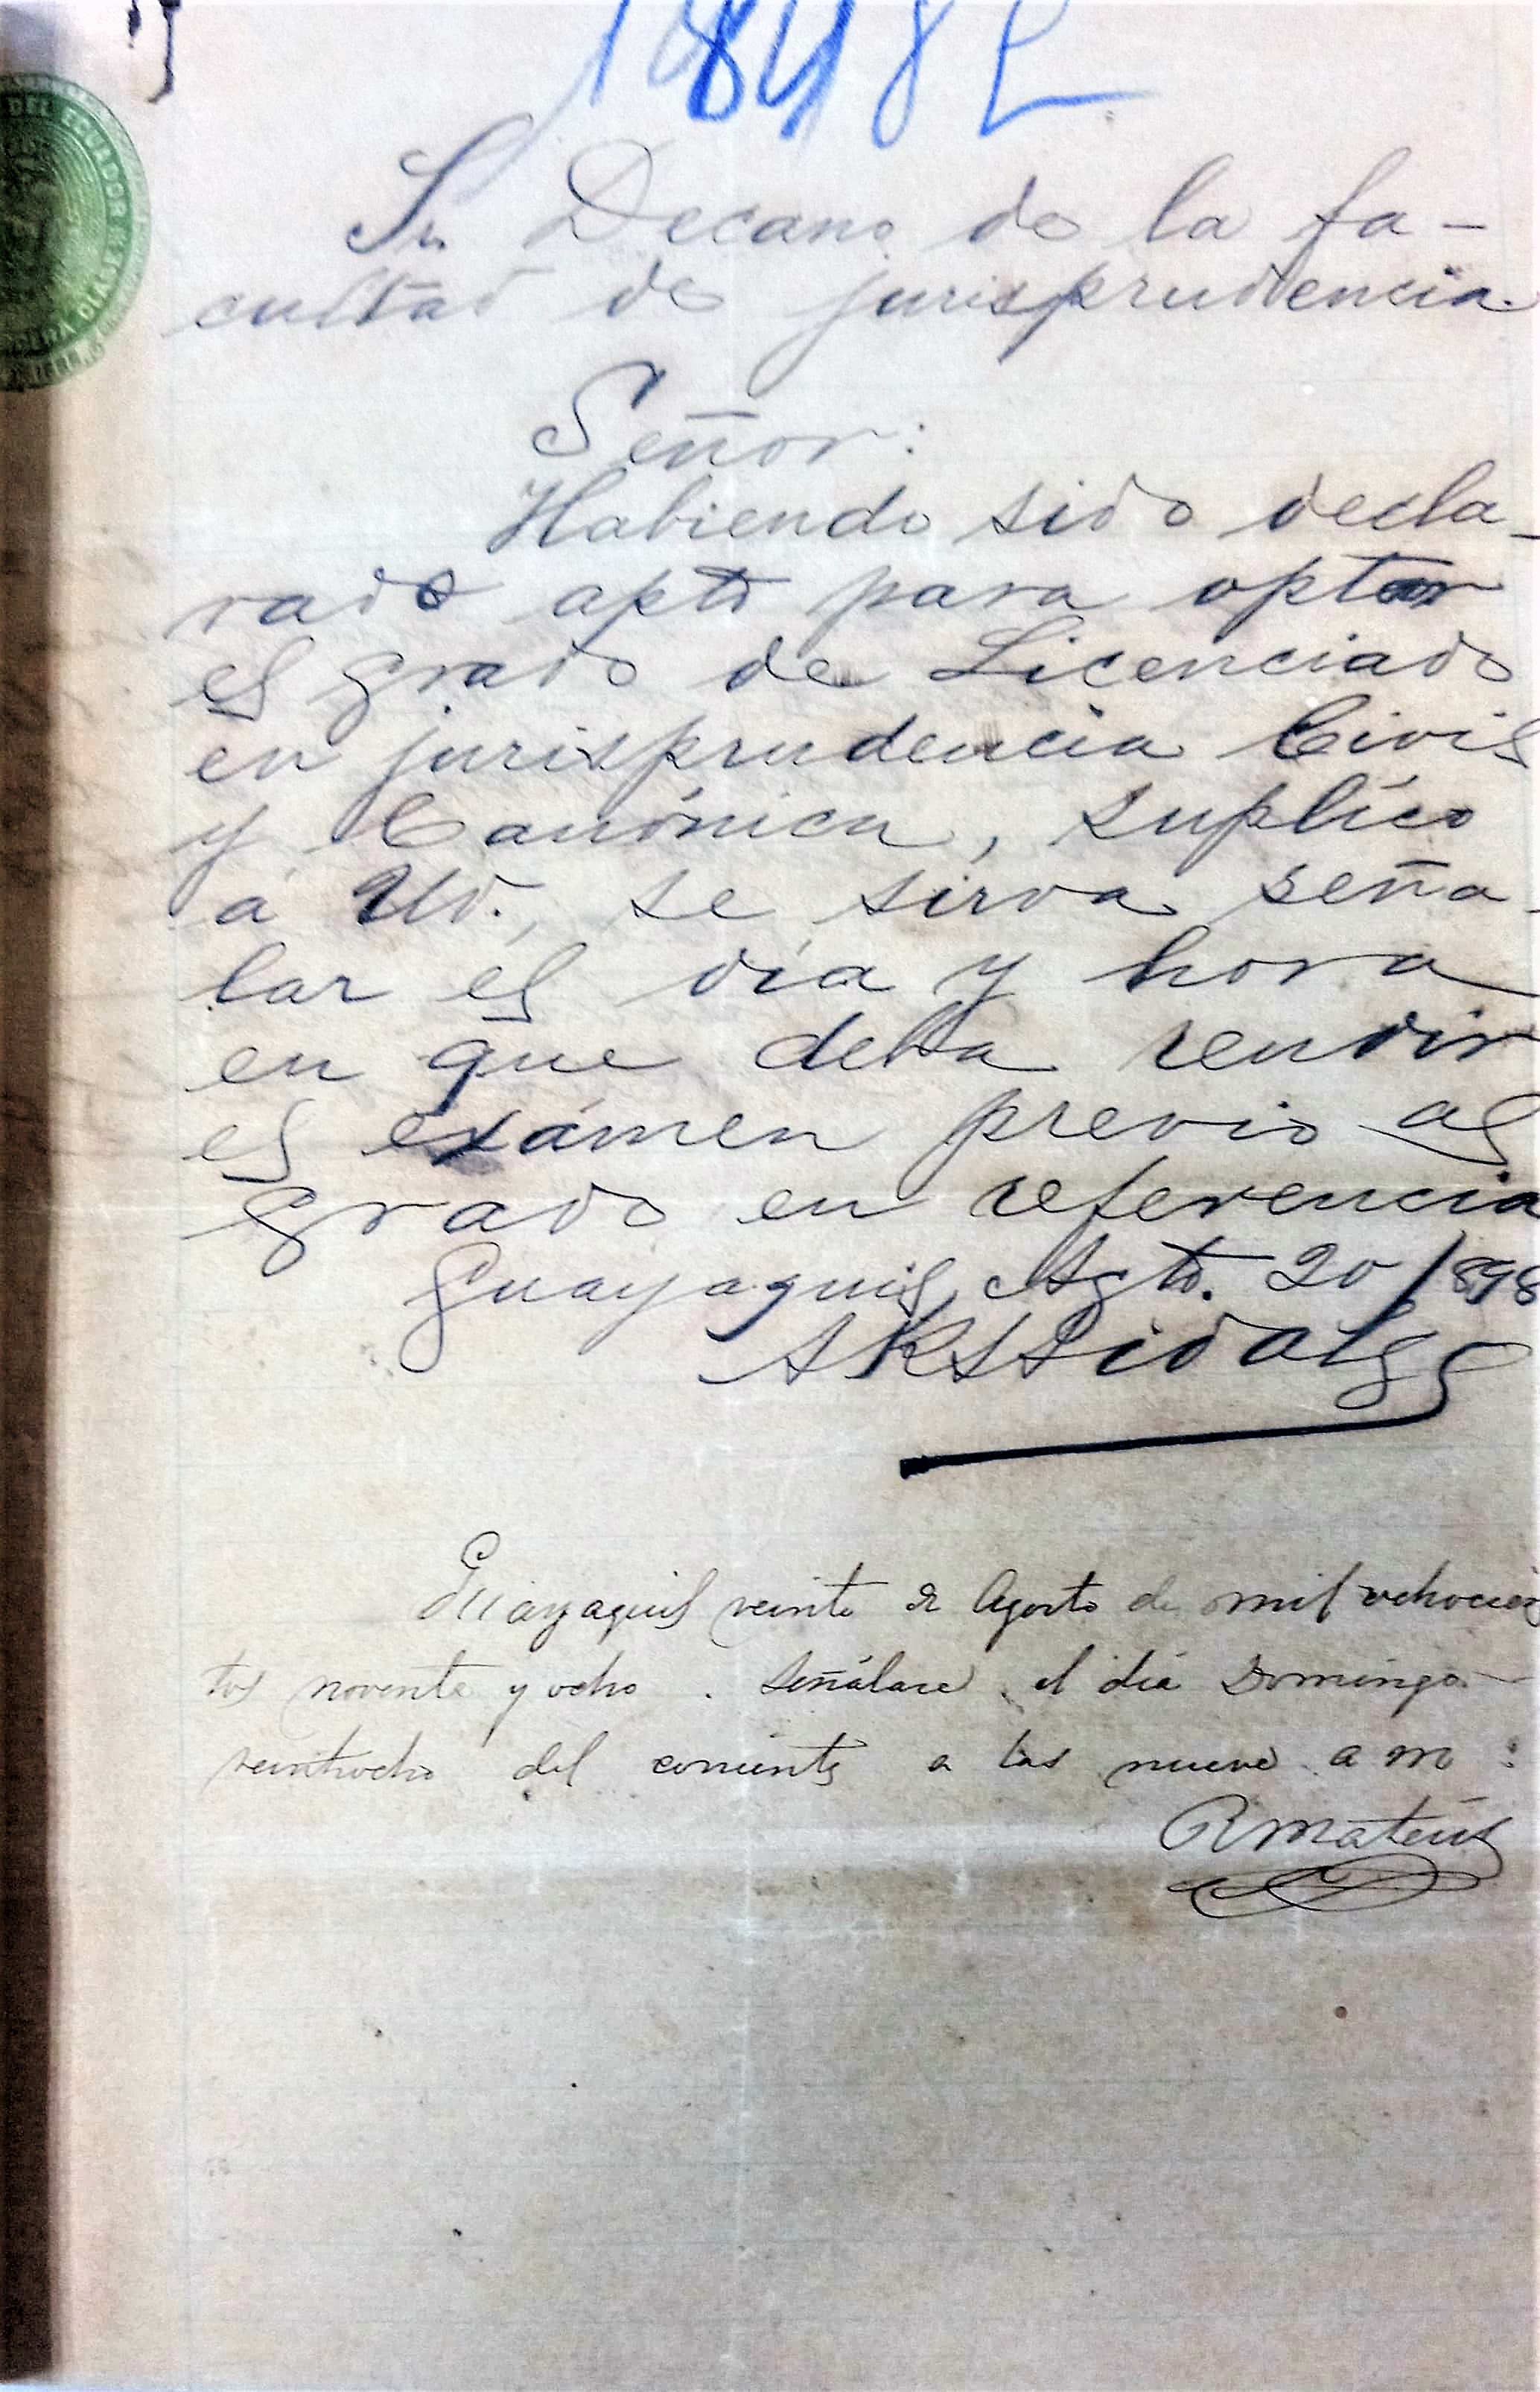 Sr. Decano de la fa-
cultad de jurisprudencia.
Señor:
Habiendo sido decla-
rado apto para optar
el grado de Licenciado
en jurisprudencia Civil
y Canónica, suplico
á Ud., se sirva seña-
lar el día y hora
en que deba rendir
el exámen previo al
grado en referencia
Guayaquil, Agto. 20/898
Hidalgo
Guayaquil veinte de Agosto de mil ochocien
tos noventa y ocho. Señálase el día Domingo
veintiocho del corriente a las nueve a m:
RMateús